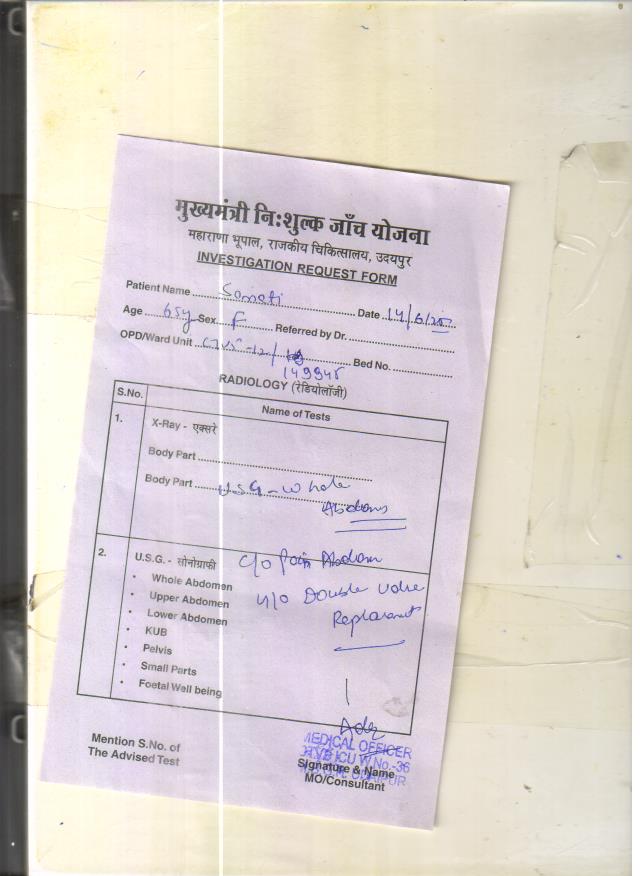 मुख्यमंत्री नि:शुल्क जाँच योजना
महाराणा भूपाल, राजकीय चिकित्सालय, उदयपुर
INVESTIGATION REQUEST FORM
Patient Name Date 14/6/25
Age 65y Sex F Referred by Dr.
OPD/Ward Unit Bed No.
149945
RADIOLOGY (रेडियोलॉजी)
S.No. Name of Tests
1. X-Ray - एक्सरे
Body Part
Body Part USG - Whole
Abdomen
2. U.S.G. - सोनोग्राफी C/O Pain Abdomen
• Whole Abdomen
• Upper Abdomen H/O Double Valve
• Lower Abdomen Replacement
• KUB
• Pelvis
• Small Parts
• Foetal Well being
Mention S.No. of
The Advised Test
MEDICAL OFFICER
ICU W.No.-36
UDAIPUR
Signature & Name
MO/Consultant